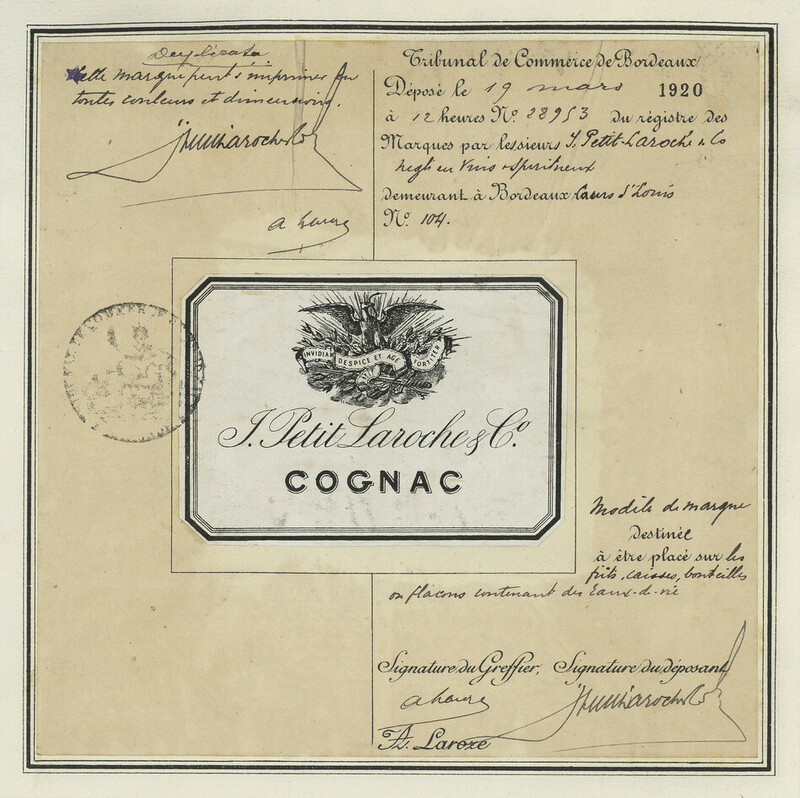 Duplicata
Cette marque peut s'imprimer en
toutes couleurs et dimensions.
J Petit Laroche & Co
Tribunal de Commerce de Bordeaux
Déposé le 19 mars 1920
à 12 heures No. 28953 du régistre des
Marques par les sieurs J. Petit-Laroche & Co
negts en Vins & Spiritueux
demeurant à Bordeaux Cours St Louis
No. 104.
INVIDIAM DESPICE ET AGE FORTITER
J. Petit Laroche & Co.
COGNAC
Modèle de marque
destinée
à être placé sur les
fûts, caisses, bouteilles
ou flacons contenant des Eaux-de-vie
Signature du Greffier, Signature du déposant
J Petit Laroche & Co
A. Laroze